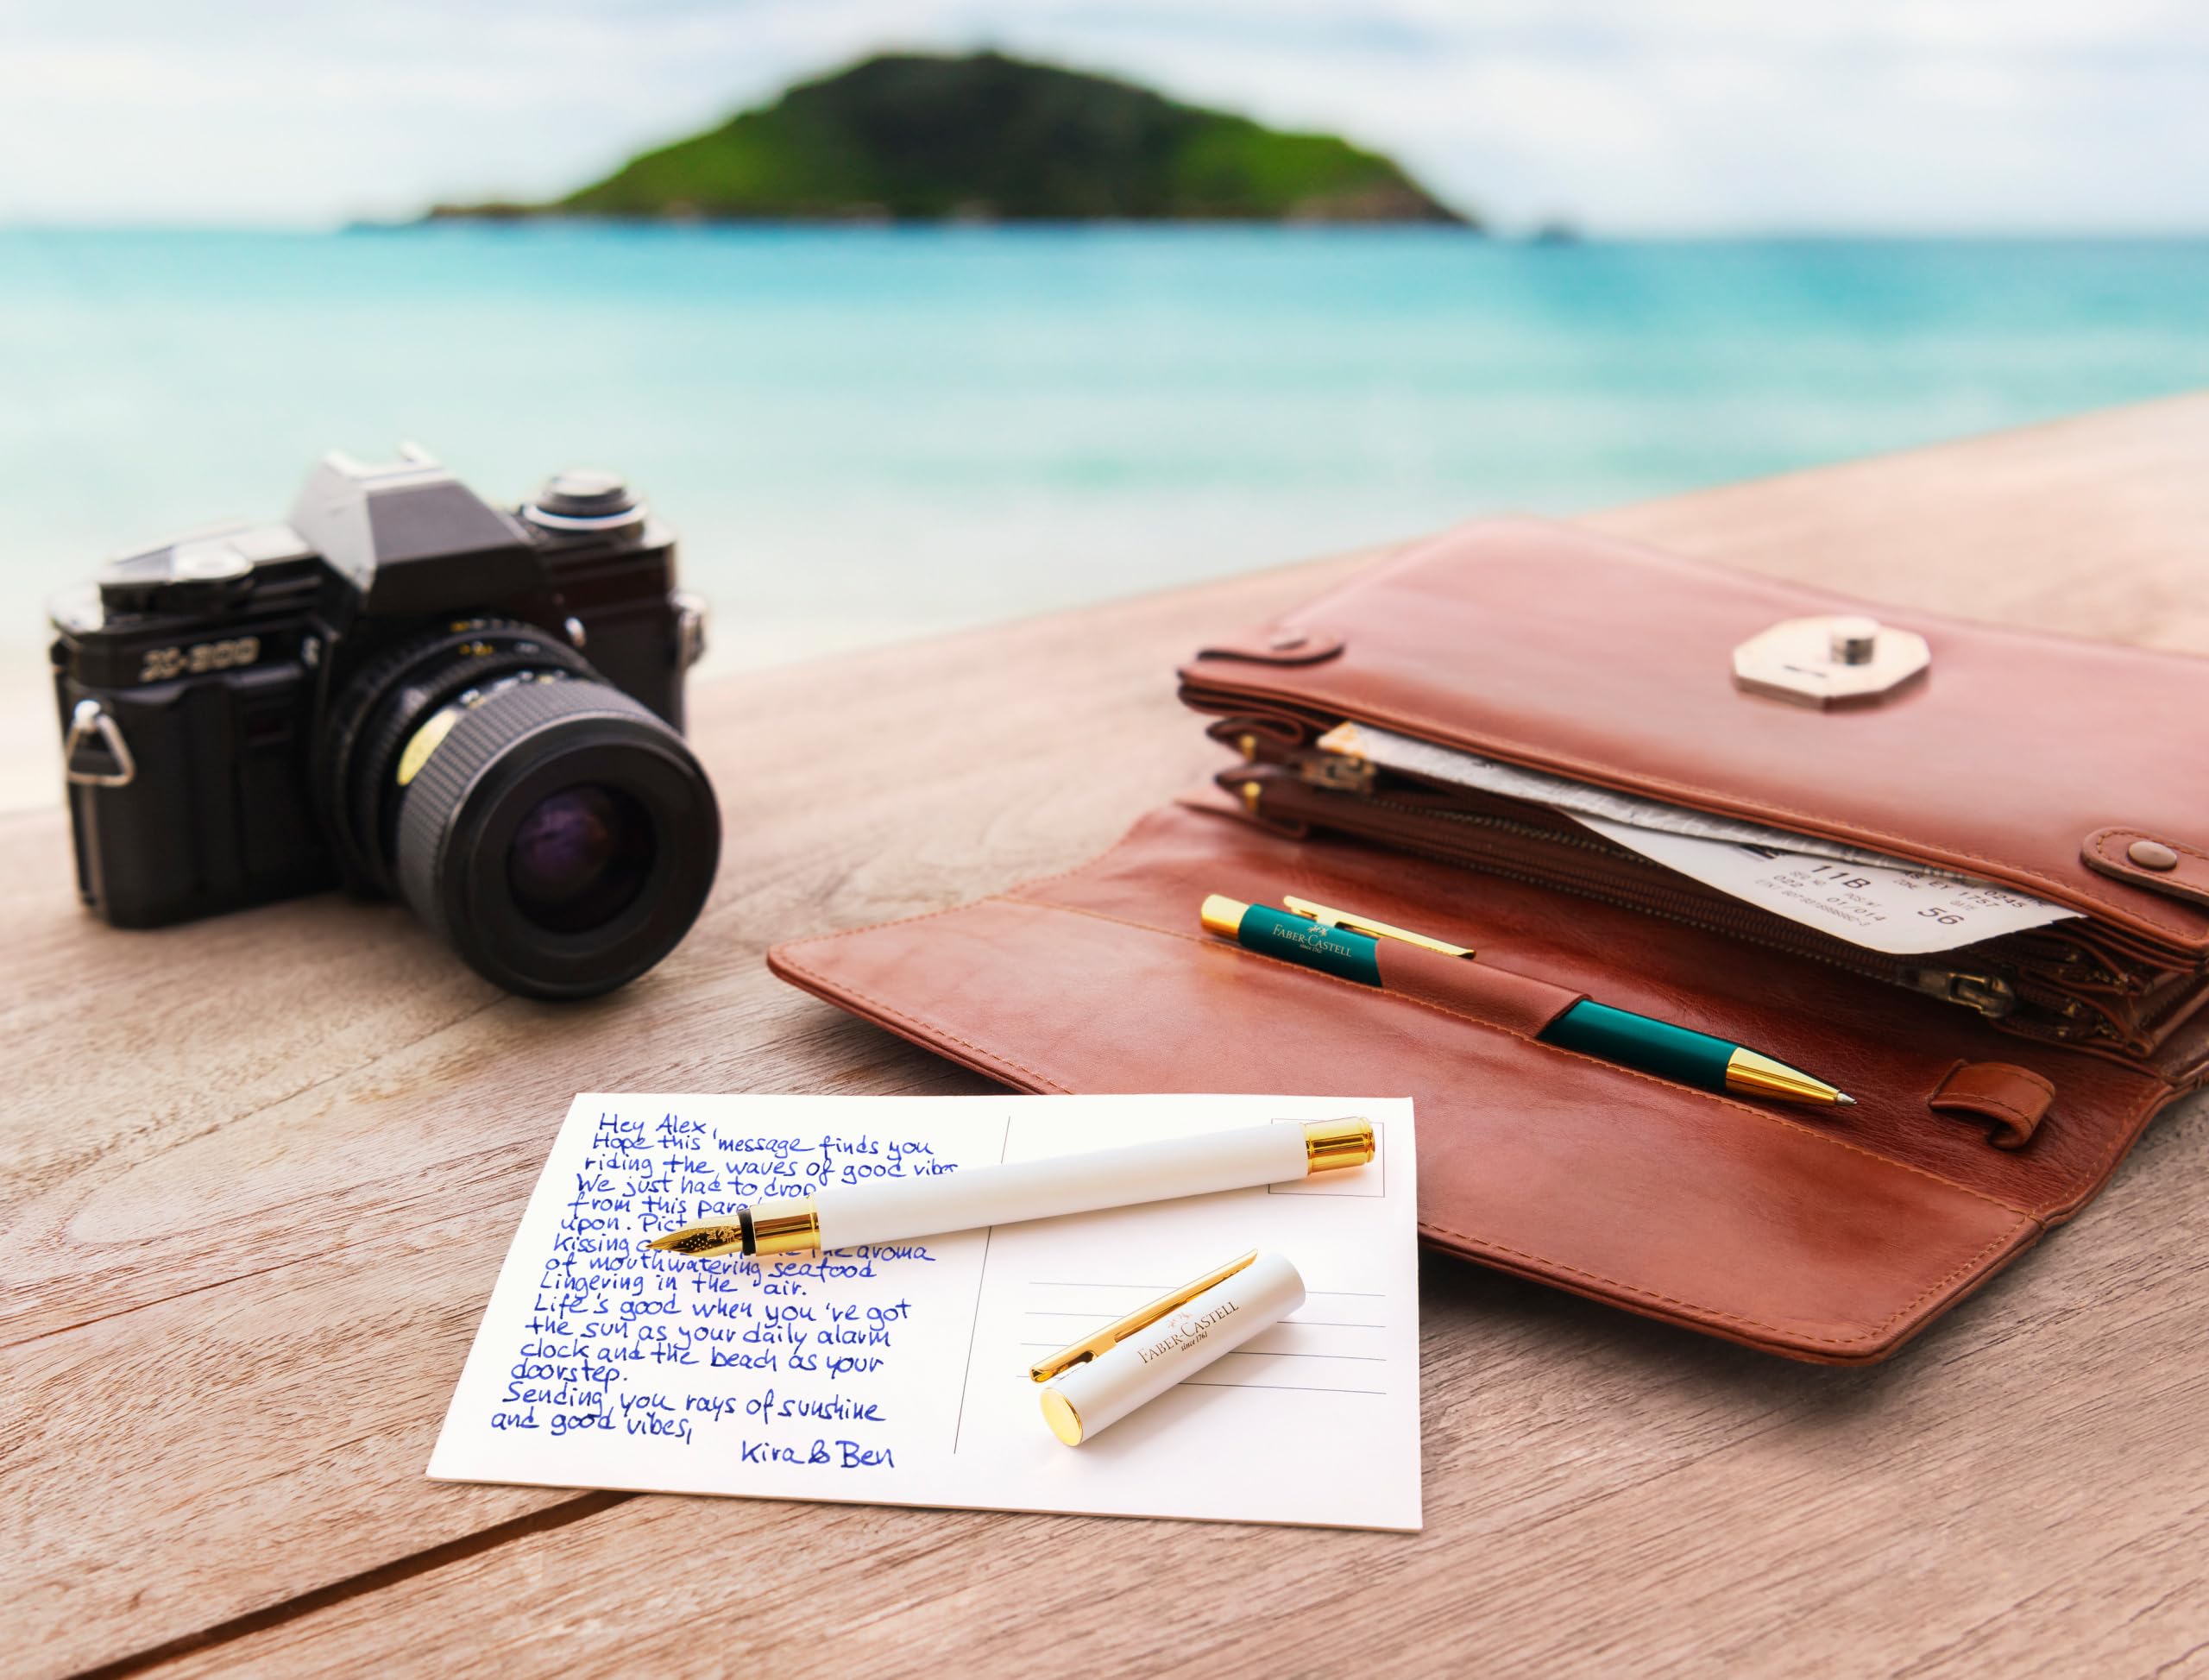 X-300
11B
56
01/014
FABER-CASTELL
since 1761
Hey Alex,
Hope this message finds you
riding the waves of good
We just had to drop
from this
upon.
Kissing aroma
of mouthwatering seafood
Lingering in the air.
Life's good when you've got
the sun as your daily alarm
clock and the beach as your
doorstep.
Sending you rays of sunshine
and good vibes,
Kira & Ben
FABER-CASTELL
since 1761